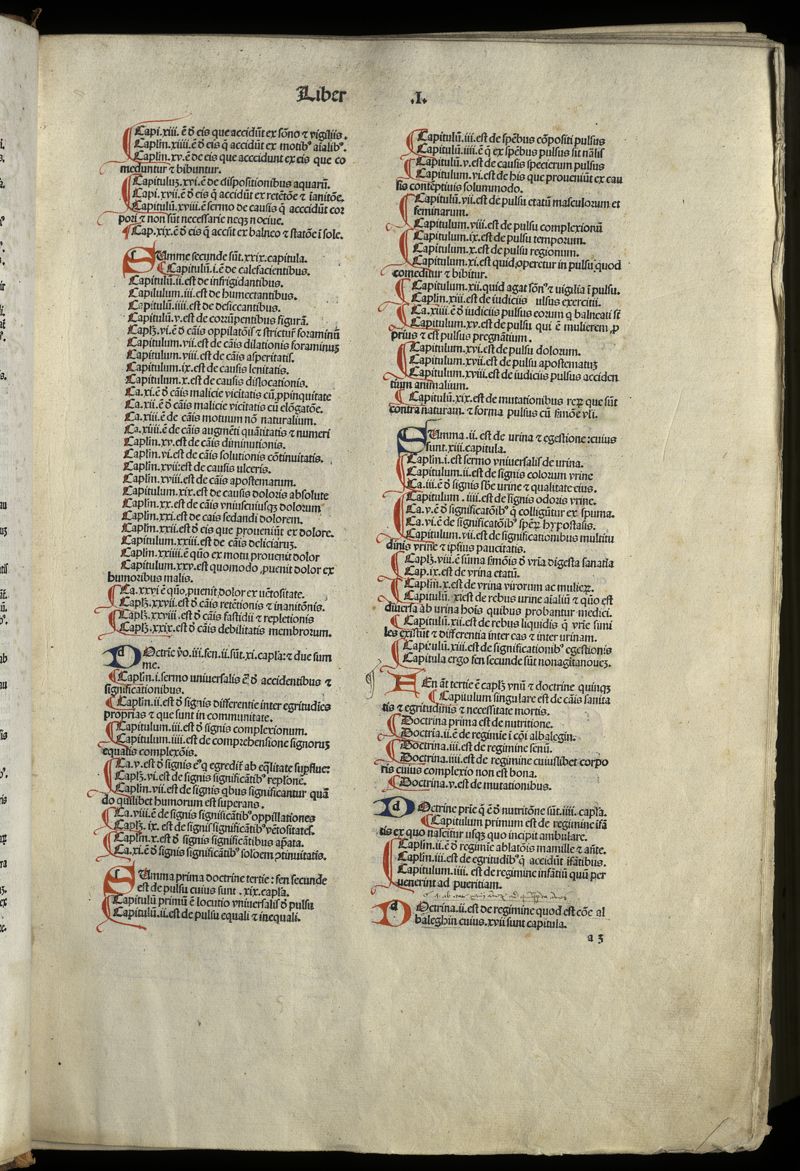 Liber .I.
Capi.xiii.ē ð eis que accidūt ex sōno ⁊ vigiliis.
Caplm.xiiii.ē ð eis q̄ accidūt ex motibꝰ aīalibꝰ.
Caplm.xv.ē de eis que acccidunt ex eis que co
meduntur ⁊ bibuntur.
Capituluꝫ.xvi.ē de dispositionibus aquarū.
Capi.xvii.ē ð eis q̄ accidūt ex retētōe ⁊ īanitōe.
Capitulū.xviii.ē sermo de causis q̄ acccidūt coꝛ
poꝛi ⁊ non sūt necessarie neqꝫ nociue.
Cap.xix.ē ð eis q̄ accn̄t ex balneo ⁊ statōe ī sole.
SUmme secunde sūt.xxix.capitula.
Capitulū.i.ē de calefacientibus.
Capitulū.ii.est de infrigidantibus.
Capitulum.iii.est de humectantibus.
Capitulū.iiii.est de desiccantibus.
Capitulū.v.est de coꝛrūpentibus figurā.
Caplꝫ.vi.ē ð cāis oppilatōis ⁊ strictuř foꝛaminū
Capitulum.vii.est de cāis dilationis foꝛaminuꝫ
Capitulum.viii.est de cāis asperitatis.
Capitulum.ix.est de causis lenitatis.
Capitulum.x.est de causis dislocationis.
Ca.xi.ē ð cāis malicie vicitatis cū ꝓpinquitate
Ca.xii.ē ð cāis malicie vicitatis cū elōgatōe.
Ca.xiii.ē de cāis motuum nō naturalium.
Ca.xiiii.ē de cāis augmēti quātitatis ⁊ numeri
Caplm.xv.est de cāis diminutionis.
Caplm.vi.est de cāis solutionis cōtinuitatis.
Caplm.xvii:est de causis ulceris.
Caplm.xviii.est de cāis apostematum.
Capitulum.xix.est de causis doloꝛis absolute
Caplm.xx.est de cāis vniuscuiusqꝫ doloꝛum
Caplm.xxi.est de cāis sedandi dolorem.
Caplm.xxii.est ð eis que ꝓueniūt ex dolore.
Capitulum.xxiii.est de cāis deliciaruꝫ.
Caplm.xxiiii.ē quō ex motu prouenit doloꝛ
Capitulum.xxv.est quomodo ꝓuenit doloꝛ ex
humoꝛibus malis.
Ca.xxvi ē quō ꝓuenit doloꝛ ex uētositate.
Caplꝫ.xxvii.est ð cāis retētionis ⁊ inanitōnis.
Caplꝫ.xxviii.est ð cāis fastidii ⁊ repletionis
Caplꝫ.xxix.est ð cāis debilitatis membroꝛum.
DOctrīe v̄o.iii.fen.ii.sūt.xi.capl'a:⁊ due sum
me.
Caplm.i.sermo uniuersalis ē ð accidentibus ⁊
significationibus.
Caplm.ii.est ð signis differentie inter egritudies
proprias ⁊ que sunt in communitate.
Capitulum.iii.est ð signis complexionum.
Capitulum.iiii.est de compꝛehensione signoꝛuꝫ
equalis complexōis.
Ca.v.est ð signis eꝰ q egredit̄ ab eq̄litate supflue:
Caplꝫ.vi.est de signis significātibꝰ replōne.
Caplm.vii.est de signis qbus significantur quā
do quilibet humorum est superans.
Ca.viii.ē de signis significātibꝰ oppillationes
Caplꝫ.ix.est de signis significātibꝰ vētositates.
Caplm.x.est ð signis significātibus ap̄ata.
Ca.xi.ē ð signis significātibꝰ soloem ꝯtinuitatis.
SUmma prima doctrine tertie:fen secunde
est de pulsu cuius sunt.xix.capl'a.
Capitulū primū ē locutio vniuersalis ð pulsu
Capitulū.ii.est de pulsu equali ⁊ inequali.
Capitulū.iii.est de spēbus cōpositi pulsus
Capitulū.iiii.ē q̄ ex spēbus pulsus sit nālis
Capitulū.v.est de causis specierum pulsus
Capitulum.vi.est de his que proueniūt ex cau
sis contēptiuis solummodo.
Capitulū.vii.est de pulsu etatū masculoꝛum et
feminarum.
Capitulum.viii.est de pulsu complexionū
Capitulum.ix.est de pulsu tempoꝛum.
Capitulum.x.est de pulsu regionum.
Capitulum.xi.est quid operetur in pulsu quod
comeditur ⁊ bibitur.
Capitulum.xii.quid agat sōnꝰ ⁊ uigilia ī pulsu.
Caplm.xiii.est de iudiciis ulsus exercitii.
Ca.xiiii.ē ð iudiciis pulsus eoꝛum q balneati st̄
Capitulum.xv.est de pulsu qui ē mulierem ꝓ
prius ⁊ est pulsus pregnātium.
Capitulum.xvi.est de pulsu doloꝛum.
Capitulum.xvii.est de pulsu apostematuꝫ
Capitulum.xviii.est de iudiciis pulsus acciden
tium animalium.
Capitulū.xix.est de mutationibus reꝝ que sūt
contra naturam.⁊ forma pulsus cū smōe vl'i.
SUmma.ii.est de urina ⁊ egestione:cuius
sunt.xiii.capitula.
Caplm.i.est sermo vniuersalis de urina.
Capitulum.ii.est de signis coloꝛum vrine
Ca.iii.ē ð signis sb̄e urine ⁊ qualitate eius.
Capitulum.iiii.est de signis odoꝛis vrine.
Ca.v.ē ð significatōibꝰ q̄ colligūtur ex spuma.
Ca.vi.ē de significatōibꝰ spēꝝ hypostasis.
Capitulum.vii.est de significationibus multitu
dinis vrine ⁊ ipsius paucitatis.
Caplꝫ.viii.ē sūma smōis ð vrīa digesta sanatīa
Cap.ix.est de vrina etatū.
Caplm.x.est de vrina virorum ac mulieꝝ.
Capitulū. xiest de rebus urine aīaliū ⁊ quō est
diuersa ab urina hois quibus probantur medici.
Capitulū.xii.est de rebus liquidis q̄ vrīe simi
les existūt ⁊ differentia inter eas ⁊ inter urinam.
Capitulū.xiii.est de significationibꝰ egestionis
Capitula ergo fen secunde sūt nonagītanoueꝫ.
FEn āt tertie ē caplꝫ vnū ⁊ doctrine quinqꝫ
Capiiulum singulare est de cāis sanita
tis ⁊ egritudinis ⁊ necessitate moꝛtis.
Doctrina prima est de nutritione.
Doctrīa.ii.ē de regimīe ī cōpi albalegin.
Doctrina.iii.est de regimine senū.
Doctrina.iiii.est de regimine cuiuslibet corpo
ris cuius complexio non est bona.
Doctrina.v.est de mutationibus.
DOctrine prīe q̄ ē ð nutritōne sūt.iiii.capl'a.
Capitulum primum est de regimine ifā
tis ex quo nascitur usqꝫ quo incipit ambulare.
Caplm.ii.ē ð regimīe ablatōis mamille ⁊ añte.
Caplm.iii.est de egritudibꝰ q̄ accidūt ifātibus.
Capitulum.iiii. est de regimine infātiū quū per
uenerint ad pueritiam.
DOctrina.ii.est de regimine quod est cōe al
baleghin cuius.xvii sunt capitula.
a 3